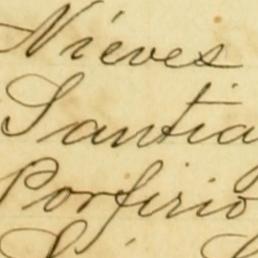 Nieves
Santia
Porfirio